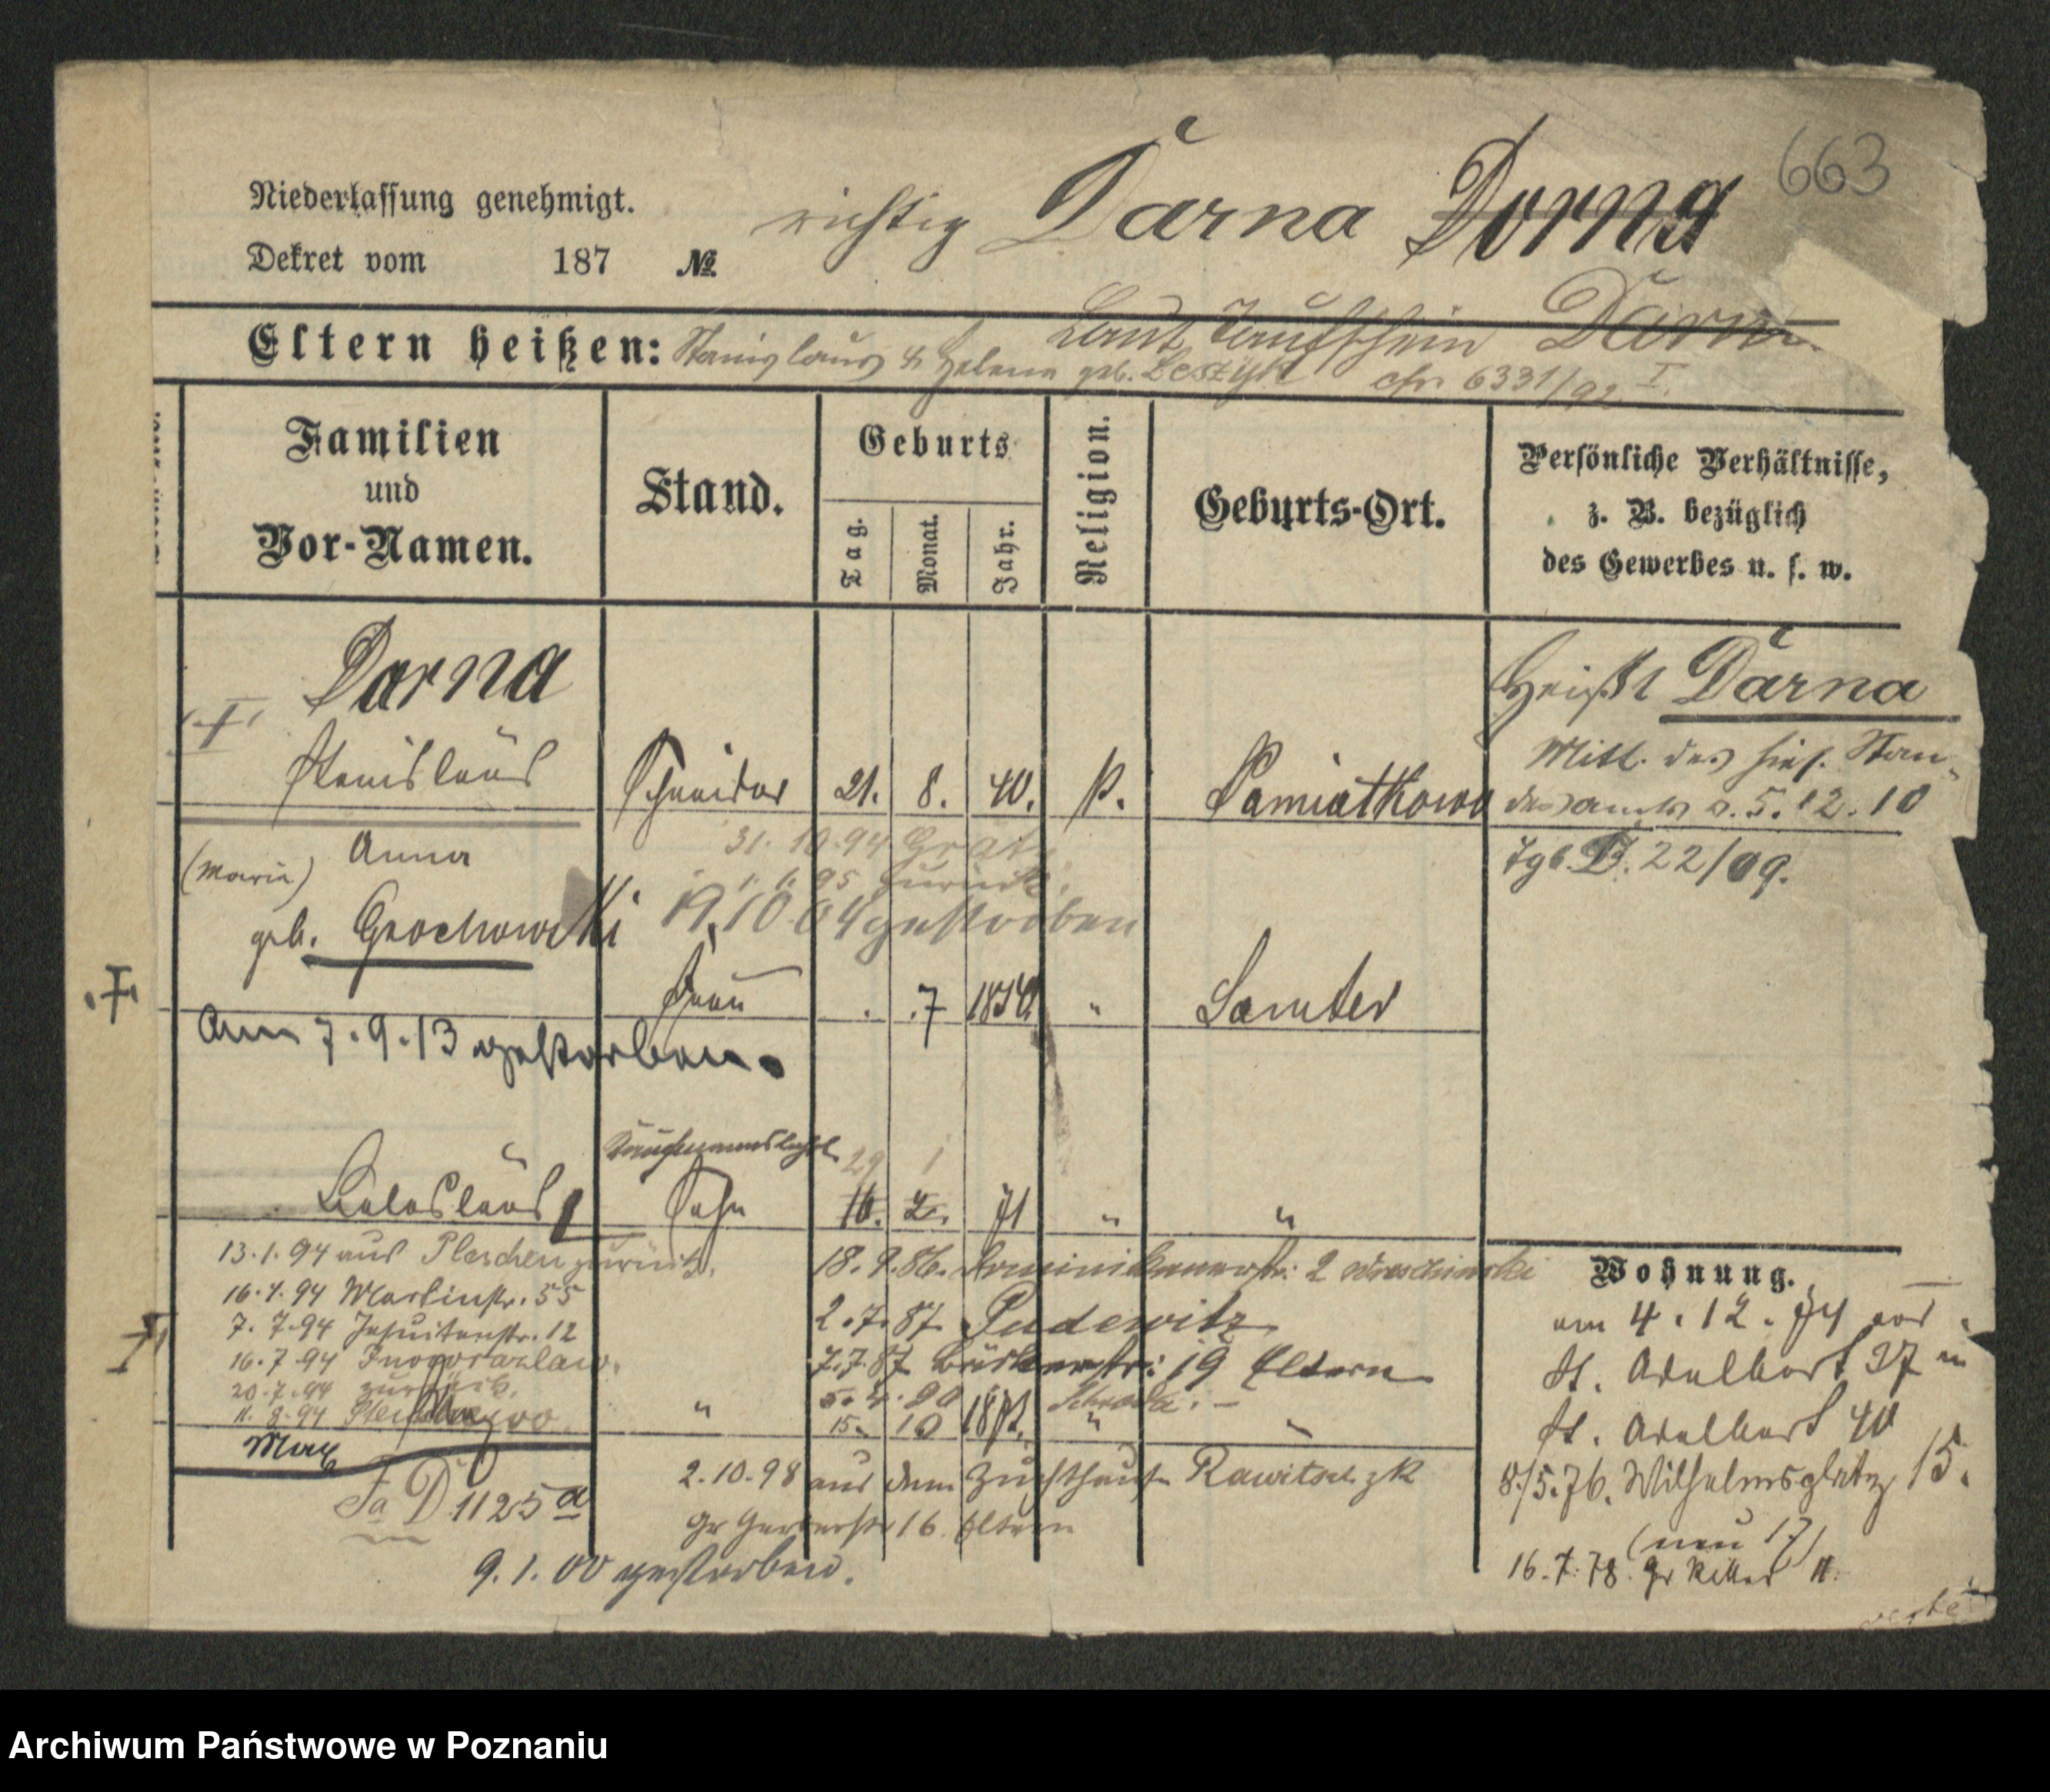 663
Niederlassung genehmigt.
richtig Darna Dorna
Dekret vom 187 №
Laut Taufschein Darna
Eltern heißen: Stanislaus & Helena geb. Leszyk
chr 6331/92 I.
Familien und Vor-Namen.
Stand.
Geburts
Tag. Monat. Jahr.
Religion.
Geburts-Ort.
Persönliche Verhältnisse,
z. B. bezüglich
des Gewerbes u. s. w.
Darna
Stanislaus Schneider 21. 8. 40. k. Pamiatkowo
Heißt Darna
Mitt. des hies. Stan-
desamts v. 5.12.10
Tgb. B. 22/09.
31. 10. 94 Grätz
1. 1. 95 zurück.
19. 10 04 gestorben
Anna
(Maria)
geb. Grochowski
Frau . .7 " Samter
Am 7.9.13 gestorben.
29 1
Boleslaus Sohn 16. 2. 71 " "
13.1.94 aus Pleschen zurück.
16.4.94 Martinstr. 55
7. 7.94 Jesuitenstr. 12
16.7.94 Inowrazlaw.
20.7.94 zurück.
11. 8.94
Max " 15. 10 " "
18.9.86. Dominikanerstr: 2
2.7.87 Pudewitz
7.7.87 19 Eltern
5. 4. 90 Schroda. –
2.10.98 aus dem Zuchthause Rawitsch zk
Gr Gerberstr 16 Eltern
D 1125 a
9.1.00 gestorben.
Wohnung.
am 4.12.74 von
St. Adalbert 37 n
St. Adalbert 40
8./5.76. Wilhelmsplatz 15.
(neu 17)
16.7.78. Gr Ritter 11.
Archiwum Państwowe w Poznaniu